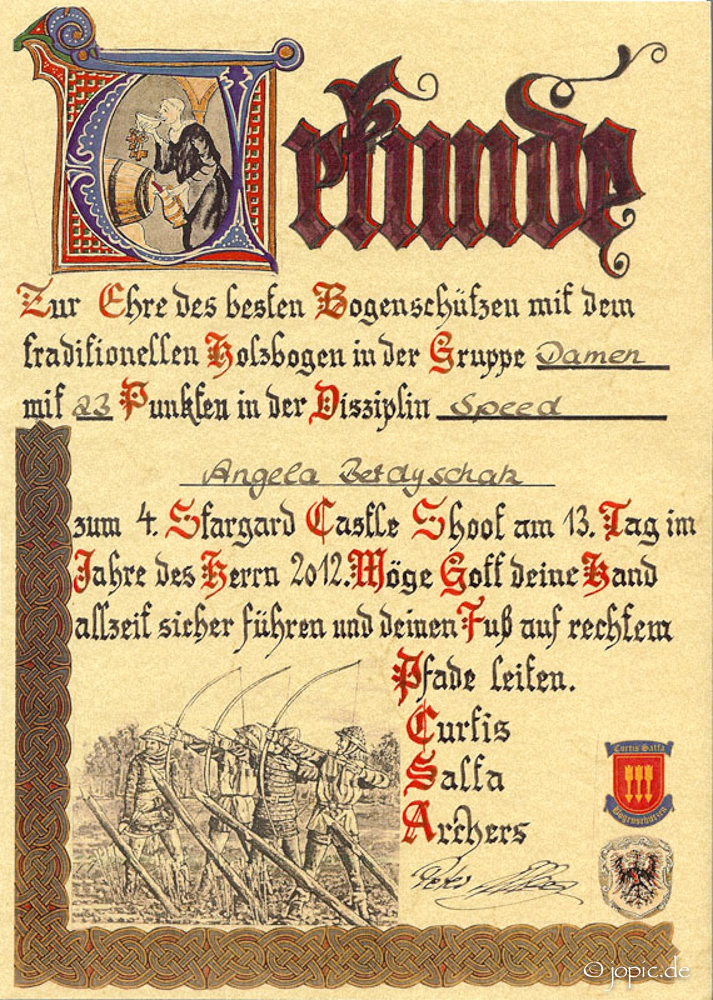 Urkunde
Zur Ehre des besten Bogenschützen mit dem
traditionellen Holzbogen in der Gruppe Damen
mit 23 Punkten in der Disziplin Speed
Angela
zum 4. Stargard Castle Shoot am 13. Tag im
Jahre des Herrn 2012. Möge Gott deine Hand
allzeit sicher führen und deinen Fuß auf rechtem
Pfade leiten.
Curtis
Salta
Archers
Curtis Salta
Bogenschützen
Peter
© jopic.de